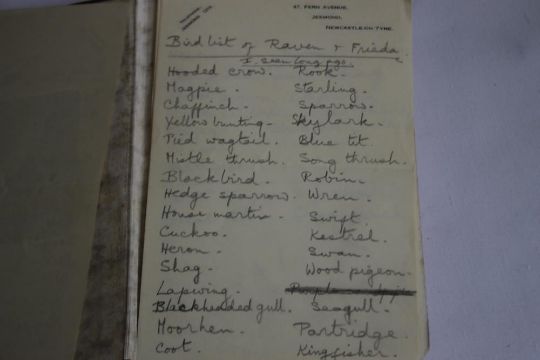 57, FERN AVENUE,
JESMOND,
NEWCASTLE-ON-TYNE.
Bird list of Raven & Frieda.
I. Seen long ago.
Hooded crow. Rook.
Magpie. Starling.
Chaffinch. Sparrow.
Yellow bunting. Skylark.
Pied wagtail. Blue tit.
Mistle thrush. Song thrush.
Blackbird. Robin.
Hedge sparrow. Wren.
House martin. Swift.
Cuckoo. Kestrel.
Heron. Swan.
Shag. Wood pigeon.
Lapwing.
Blackheaded gull. Seagull.
Moorhen. Partridge.
Coot. Kingfisher.